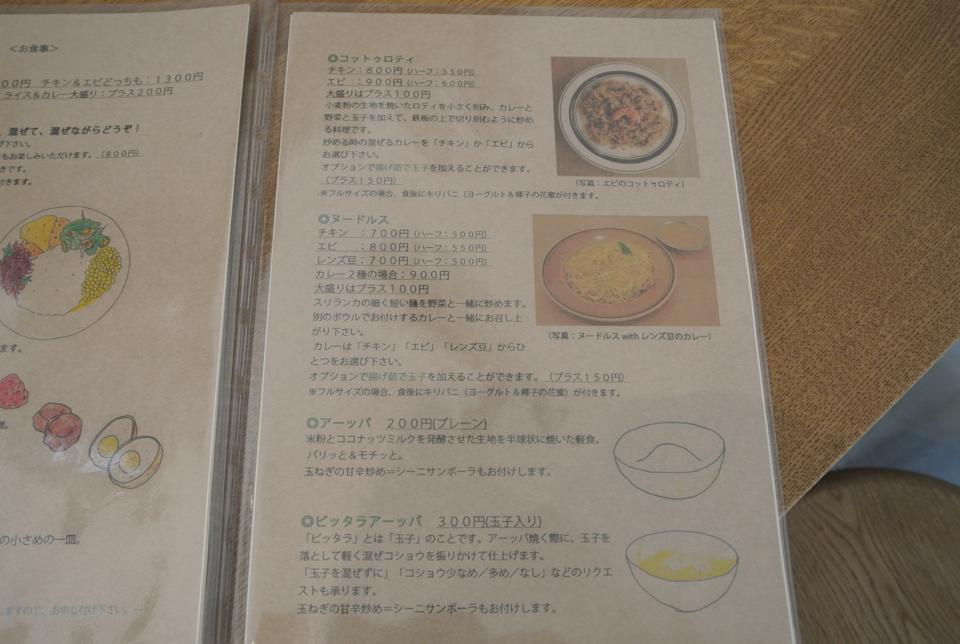 ＜お食事＞
00円　チキン＆エビどっちも：１３００円
ライス＆カレー大盛り：プラス２００円
、混ぜて、混ぜながらどうぞ！
下さい。
もお楽しみいただけます。（８００円）
きです。
付きます。
ます。
の小さめの一皿。
しますので、お申し付け下さい。
◎コットゥロティ
チキン：８００円（ハーフ：５５０円）
エビ　：９００円（ハーフ：６００円）
大盛りはプラス１００円
小麦粉の生地を焼いたロティを小さく刻み、カレーと
野菜と玉子を加えて、鉄板の上で切り刻むように炒め
る料理です。
炒める時の混ぜるカレーを「チキン」か「エビ」から
お選び下さい。
オプションで揚げ茹で玉子を加えることができます。
（プラス１５０円）
※フルサイズの場合、食後にキリパニ（ヨーグルト＆椰子の花蜜が付きます。
（写真：エビのコットゥロティ）
◎ヌードルス
チキン　：７００円（ハーフ：５００円）
エビ　　：８００円（ハーフ：５５０円）
レンズ豆：７００円（ハーフ：５００円）
カレー２種の場合：９００円
大盛りはプラス１００円
スリランカの細く短い麺を野菜と一緒に炒めます。
別のボウルでお付けするカレーと一緒にお召し上
がり下さい。
カレーは「チキン」「エビ」「レンズ豆」からひ
とつをお選び下さい。
オプションで揚げ茹で玉子を加えることができます。（プラス１５０円）
※フルサイズの場合、食後にキリパニ（ヨーグルト＆椰子の花蜜）が付きます。
（写真：ヌードルス with レンズ豆のカレー）
◎アーッパ　２００円(プレーン)
米粉とココナッツミルクを発酵させた生地を半球状に焼いた軽食。
パリッと＆モチッと。
玉ねぎの甘辛炒め＝シーニサンボーラもお付けします。
◎ビッタラアーッパ　３００円(玉子入り)
「ビッタラ」とは「玉子」のことです。アーッパ焼く際に、玉子を
落として軽く混ぜコショウを振りかけて仕上げます。
「玉子を混ぜずに」「コショウ少なめ／多め／なし」などのリクエ
ストも承ります。
玉ねぎの甘辛炒め＝シーニサンボーラもお付けします。